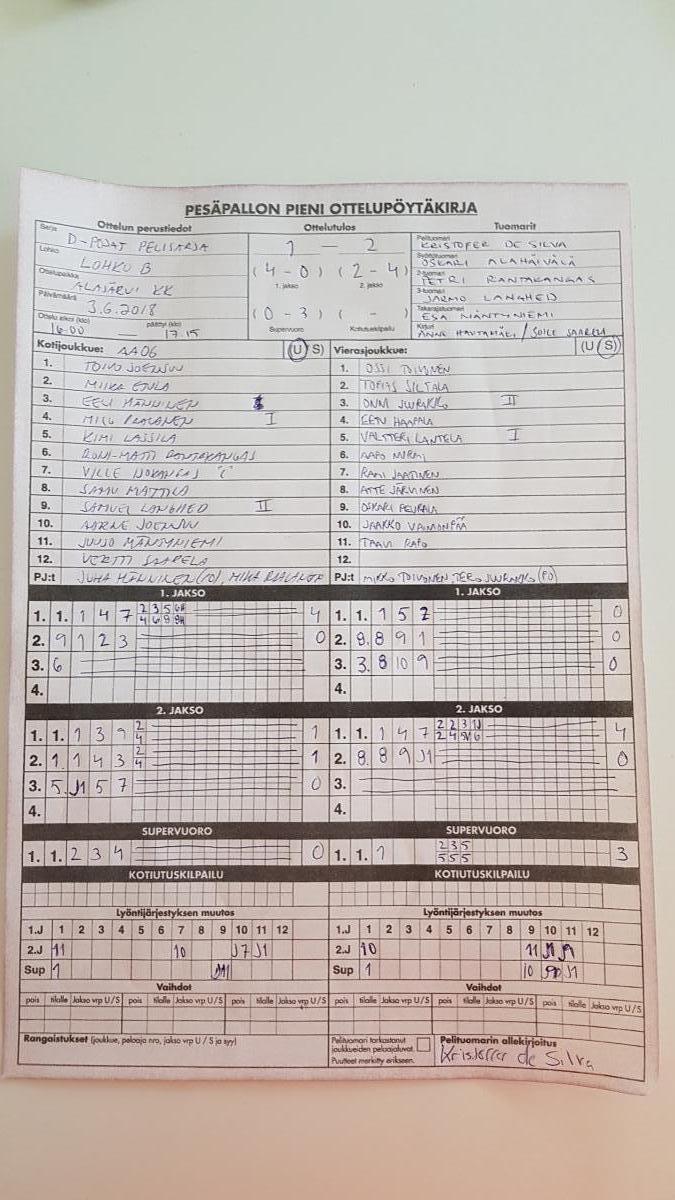 PESÄPALLON PIENI OTTELUPÖYTÄKIRJA
Ottelun perustiedot Ottelutulos Tuomarit
Sarja D-POJAT PELISARJA 1 — 2 Pelituomari KRISTOFER DE SILVA
Lohko LOHKO B (4 - 0) (2 - 4) Syöttötuomari OSKARI ALAHÄIVÄLÄ
1. jakso 2. jakso
Ottelupaikka ALAJÄRVI KK 2-tuomari PETRI RANTAKANGAS
Päivämäärä 3.6.2018 (0 - 3) ( - ) 3-tuomari JARMO LANGHED
Takarajatuomari ESA MÄNTYNIEMI
Ottelu alkoi (klo) 16.00 — päättyi (klo) 17.15 Supervuoro Kotiutuskilpailu Kirjuri ANNE HAUTAMÄKI / SOILE SAARELA
Kotijoukkue: AA06 (U S) Vierasjoukkue: (U S)
1. TOIVO JOENSUU 1. OSSI TOIVONEN
2. MIIKA 2. TOPIAS SILTALA
3. EELI MÄNNINEN 3. ONNI JUURAKKO II
4. I 4. EETU HAAPALA
5. KIMI LASSILA 5. VALTTERI LANTELA I
6. RONI-MATTI RANTAKANGAS 6. AAPO NURMI
7. VILLE ISOKANGAS "C" 7. RAMI JAATINEN
8. SAMU MATTILA 8. ATTE JÄRVINEN
9. SAMUEL LANGHED II 9. OSKARI PEURALA
10. AARNE JOENSUU 10. JAAKKO VAINIONPÄÄ
11. JUUSO MÄNTYNIEMI 11. TAAVI RAPO
12. VERTTI SAARELA 12.
PJ:t JUHA MÄNNINEN (PO), MIKA PJ:t MIKKO TOIVONEN, TERO JUURAKKO (PO)
1. JAKSO 1. JAKSO
1. 1. 1 4 7 2 3 5 6 4 1. 1. 1 5 2 0
4 6 8
2. 9 1 2 3 0 2. 8. 8 9 1 0
3. 6 3. 3. 8 10 9 0
4. 4.
2. JAKSO 2. JAKSO
1. 1. 1 3 9 2 1 1. 1. 1 4 7 2 2 3 4
4 2 4 6
2. 1. 1 4 3 2 1 2. 8. 8 9 11 0
4
3. 5. 11 5 7 0 3.
4. 4.
SUPERVUORO SUPERVUORO
1. 1. 2 3 4 0 1. 1. 1 2 3 5 3
5 5 5
KOTIUTUSKILPAILU KOTIUTUSKILPAILU
Lyöntijärjestyksen muutos Lyöntijärjestyksen muutos
1.J 1 2 3 4 5 6 7 8 9 10 11 12 1.J 1 2 3 4 5 6 7 8 9 10 11 12
2.J 11 10 11 2.J 10 11
Sup 1 Sup 1 10 11
Vaihdot Vaihdot
pois tilalle Jakso vrp U/S pois tilalle Jakso vrp U/S pois tilalle Jakso vrp U/S pois tilalle Jakso vrp U/S pois tilalle Jakso vrp U/S pois tilalle Jakso vrp U/S
Rangaistukset (joukkue, pelaaja nro, jakso vrp U / S ja syy) Pelituomari tarkastanut Pelituomarin allekirjoitus
joukkueiden pelaajaluvat. Kristoffer de Silva
Puutteet merkitty erikseen.